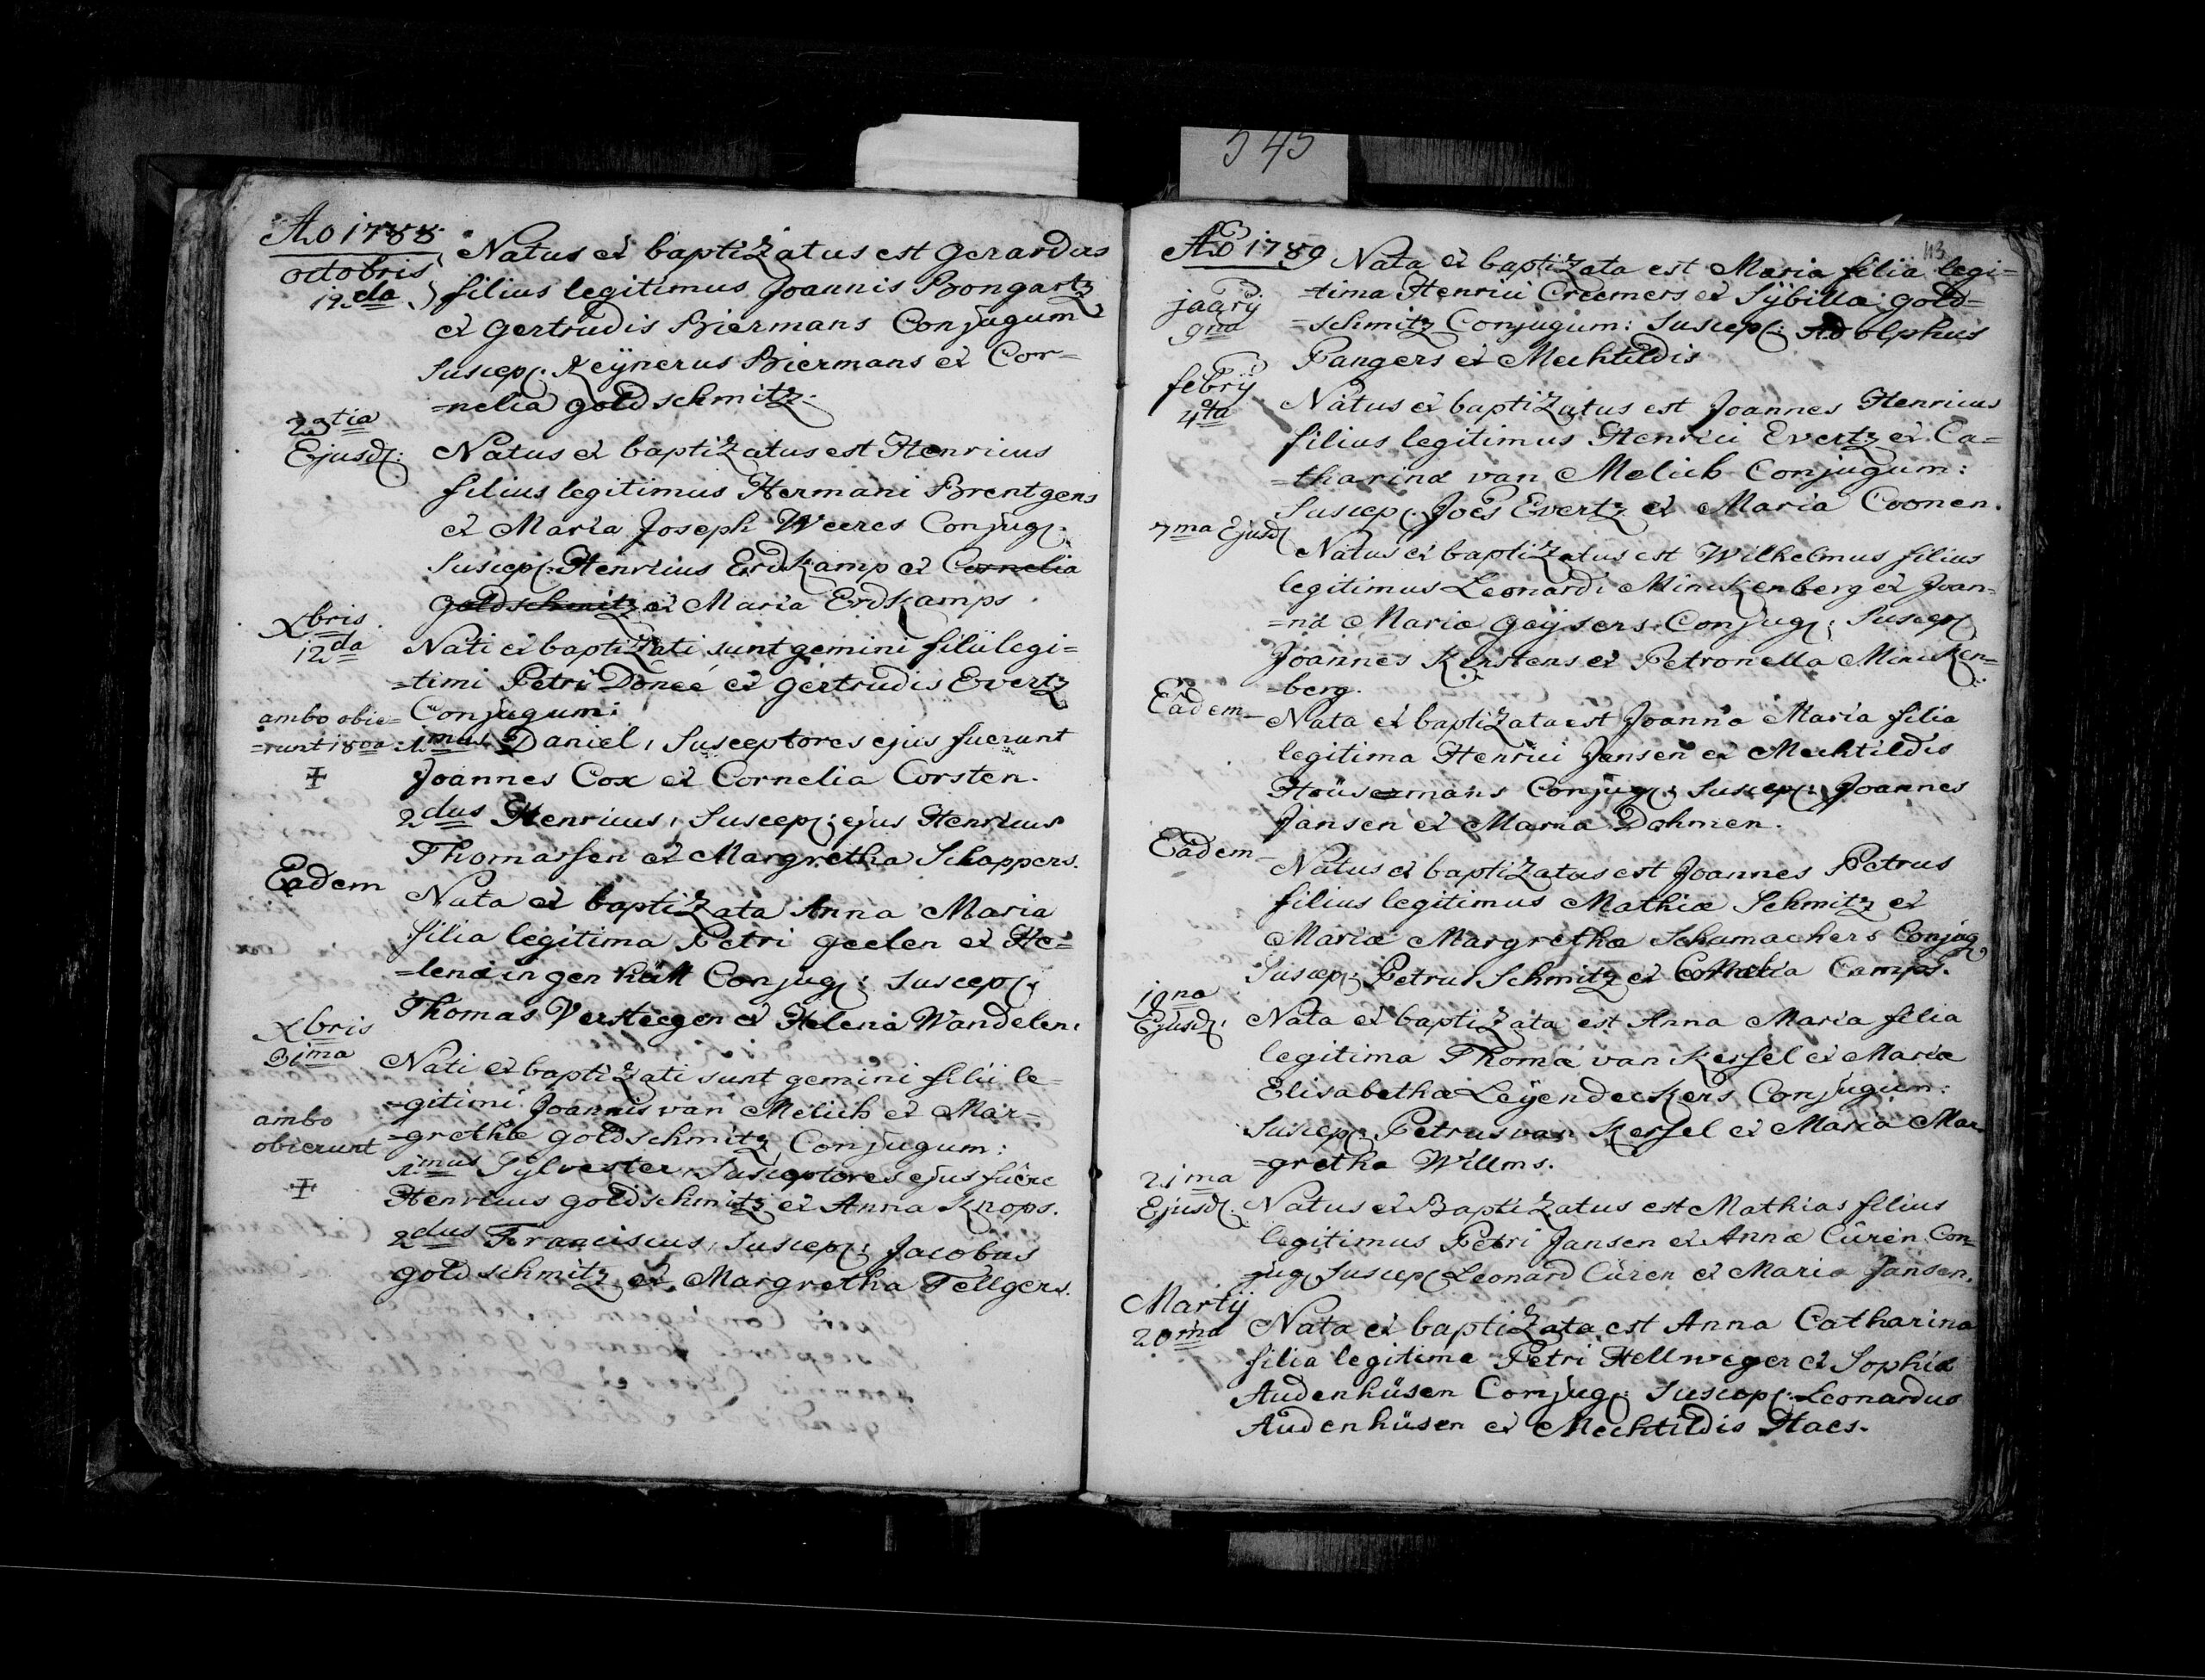 545
Ao 1788
octobris
12da
Natus et baptizatus est Gerardus
filius legitimus Joannis Bongartz
et Gertrudis Biermans Conjugum
Suscep: Reÿnerus Biermans et Cor=
=nelia goldschmitz.
23tia
Ejusd:
Natus et baptizatus est Henricus
filius legitimus Hermani Brentgens
et Maria Joseph Weeres Conjug:
Suscep: Henricus Erdkamp et Cornelia
Goldschmitz et Maria Erdkamps.
Xbris
12da
Nati et baptizati sunt gemini filii legi=
=timi Petri Doneé et Gertrudis Evertz
Conjugum:
ambo obie=
=runt
1mus Daniel, Susceptores ejus fuerunt
Joannes Cox et Cornelia Corsten.
2dus Henricus, Suscep: ejus Henricus
Thomassen et Margretha Schappers.
Eadem
Nata et baptizata Anna Maria
filia legitima Petri geelen et He=
=lena in gen Conjug: Suscep:
Thomas Versteegen et Helena Wandelen.
Xbris
31ma
Nati et baptizati sunt gemini filii le=
=gitimi Joannis van Melich et Mar=
=grethæ goldschmitz Conjugum:
ambo
obierunt
1mus Sylvester, Susceptores ejus fuêre
Henricus goldschmitz et Anna Knops.
2dus Franciscus, Suscep: Jacobus
goldschmitz et Margretha Tellgers.
113
Ao 1789
jaarÿ
9na
Nata et baptizata est Maria filia legi=
=tima Henrici Creemers et Sÿbilla gold=
=schmitz Conjugum: Suscep: Adolphus
Pangers et Mechtildis
febrÿ
4ta
Natus et baptizatus est Joannes Henricus
filius legitimus Henrici Evertz et Ca=
=tharinæ van Melich Conjugum:
Suscep: Joes Evertz et Maria Coonen.
7ma Ejusd
Natus et baptizatus est Wilhelmus filius
legitimus Leonardi Minckenberg et Joan=
=næ Mariæ Gaÿsers Conjug: Suscep
Joannes Kerstens et Petronella Mincken=
=berg.
Eadem
Nata et baptizata est Joanna Maria filia
legitima Henrici Jansen et Mechtildis
Haüsermans Conjug: Suscep: Joannes
Jansen et Maria Dahmen.
Eadem
Natus et baptizatus est Joannes Petrus
filius legitimus Mathiæ Schmitz et
Mariæ Margrethæ Schumachers Conjug
Suscep: Petrus Schmitz et Cornelia Camps.
19na
Ejusd:
Nata et baptizata est Anna Maria filia
legitima Thomæ van Kessel et Mariæ
Elisabethæ Leÿendeckers Conjugum:
Suscep: Petrus van Kessel et Maria Mar=
=gretha Willms.
21ma
Ejusd.
Natus et Baptizatus est Mathias filius
legitimus Petri Jansen et Annæ Cüren Con=
=jug Suscep Leonard Cüren et Maria Jansen.
Martÿ
20ma
Nata et baptizata est Anna Catharina
filia legitima Petri Hellweger et Sophiæ
Audenhüsen Conjug: Suscep: Leonardus
Audenhüsen et Mechtildis Haes.